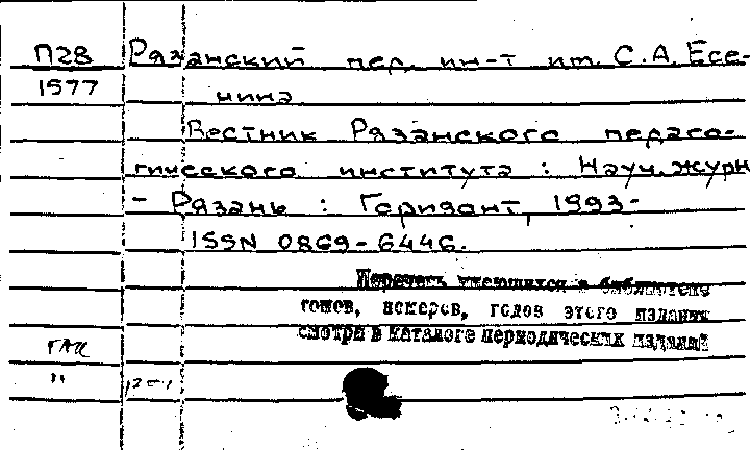 П28 Рязанский пед. ин-т им. С.А. Есе-
1577 нина
Вестник Рязанского педаго-
гического института : Науч. журн
- Рязань : Горизонт, 1993-
ISSN 0869-6446.
Перечень имеющихся в библиотеке
томов, номеров, годов этого издания
смотри в каталоге периодических изданий